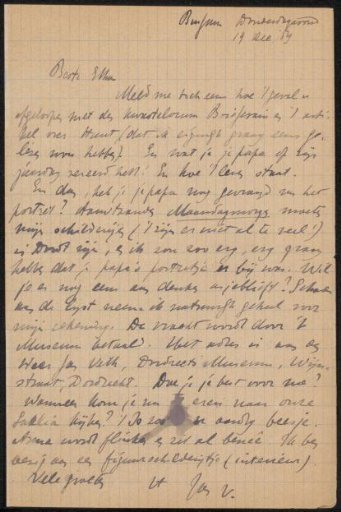 Bussum Donderdagavond
19 Dec 89
Beste Etha
Meld me toch eens hoe 't geval is
afgeloopen met den Briefman en 't arti-
kel over Haut, (dat ik eigenlijk graag eens ge-
lezen wou hebben) En wat je je papa op zijn
jaardag vereerd hebt! En hoe 't leven staat.
En dan, heb je je papa nog gevraagd van het
portret? Aanstaande Maandagmorgen moeten
mijn schilderijen ('t zijn er niet al te veel!)
in Dordt zijn, en ik zou zoo erg, erg graag
hebben dat je papa's portretje er bij was. Wil
je er nog eens aan denken asjeblieft? Schade
aan de lijst neem ik natuurlijk geheel voor
mijn rekening. De vracht wordt door 't
Museum betaald. Het adres is aan den
Heer Jan Veth, Dordrects Museum, Wijn-
straat, Dordrecht. Doe je je best voor me?
Wanneer kom je nu eens naar onze
Saskia kijken? 't Is zoo'n aardig beesje.
Anna wordt flinker en zit al beneê. Ik ben
bezig aan een figuurschilderijtje (interieur).
Vele groeten tt Jan V.